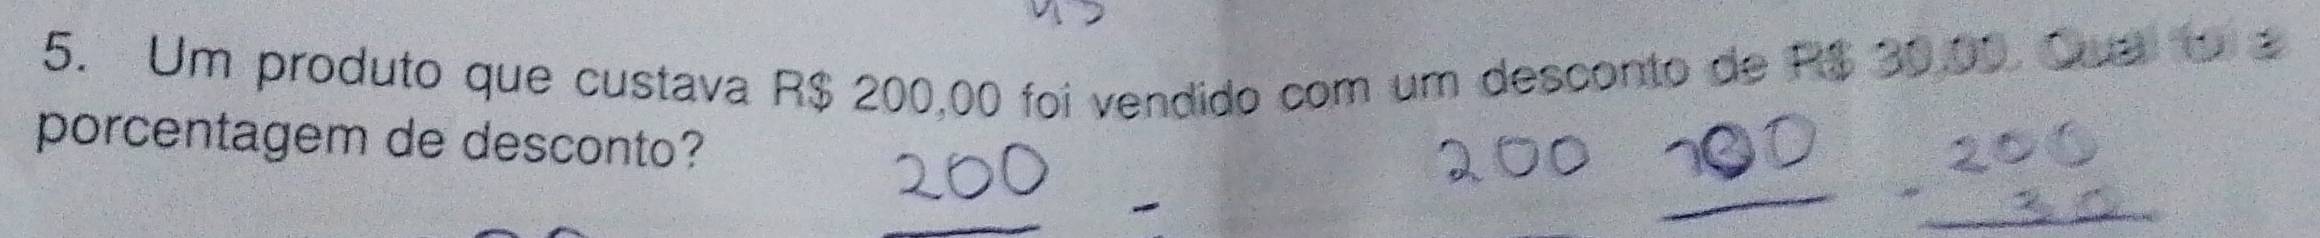 5. Um produto que custava R$ 200,00 foi vendido com um desconto de R$ 30,00. Qual foi a
porcentagem de desconto?
200 - 200 100 - 200
30